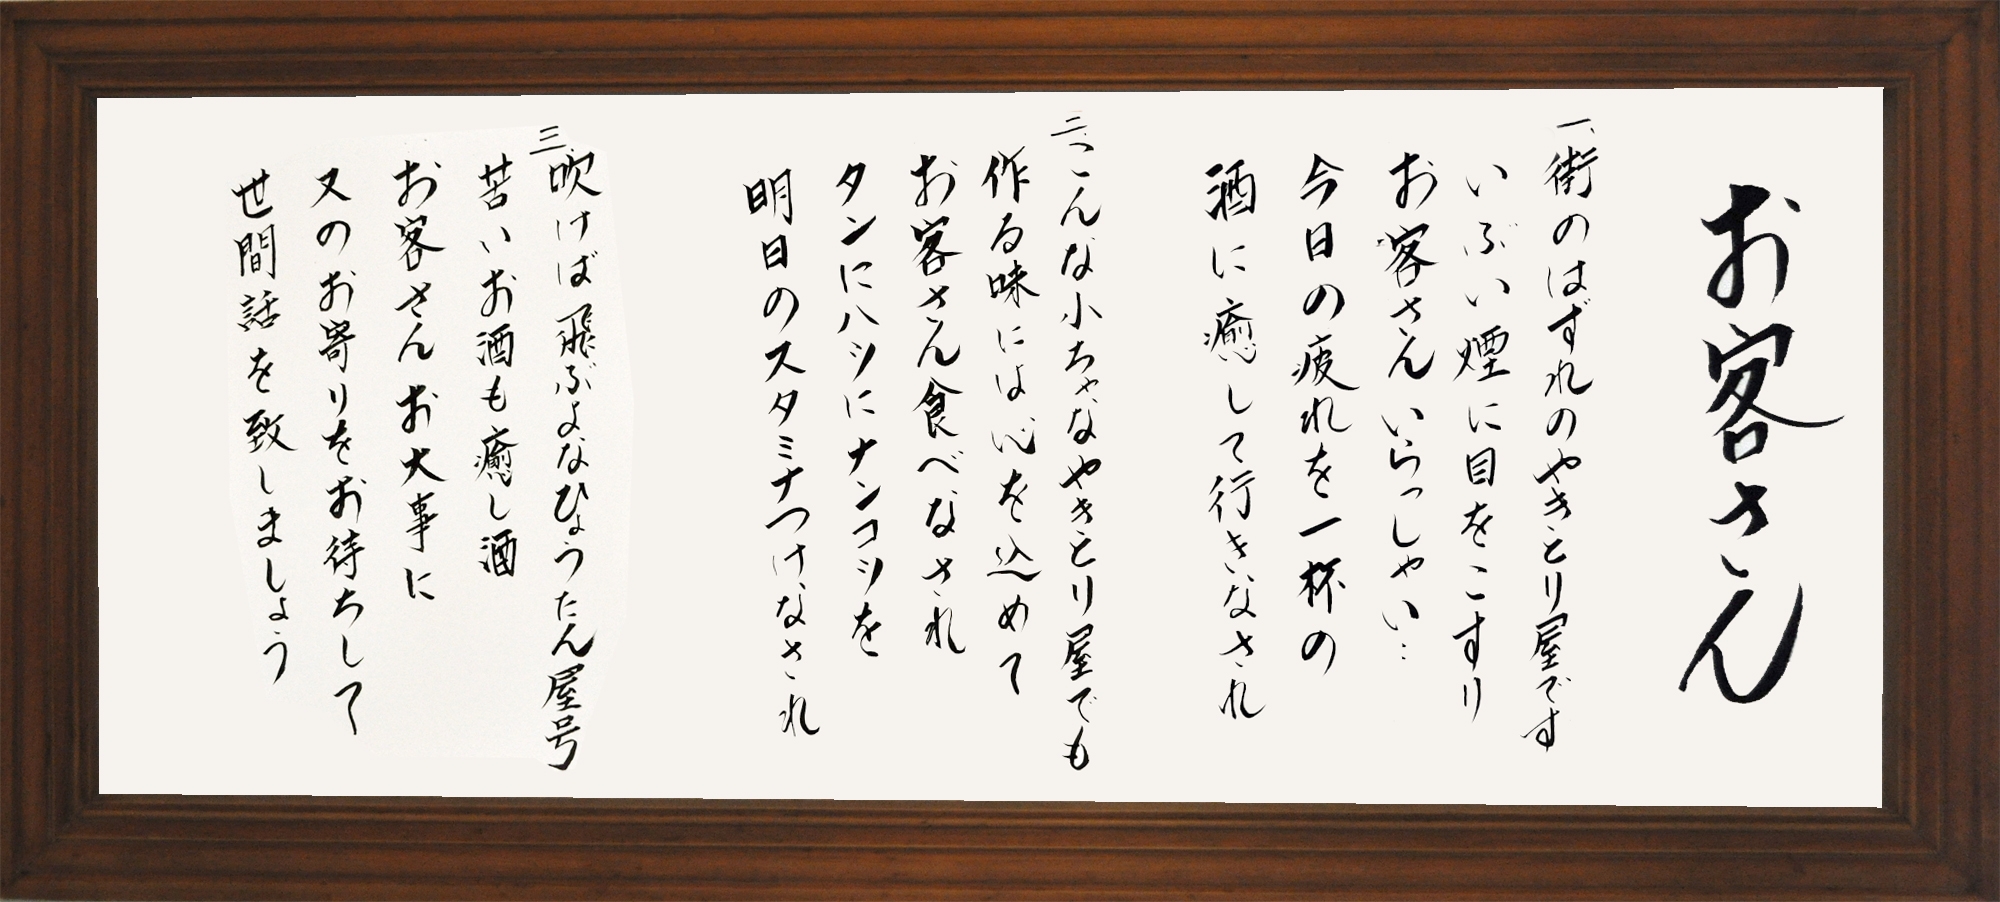 お客さん
一、街のはずれのやきとり屋です
いぶい煙に目をこすり
お客さんいらっしゃい…
今日の疲れを一杯の
酒に癒して行きなされ
二、こんな小ちゃなやきとり屋でも
作る味には心を込めて
お客さん食べなされ
タンにハツにナンコツを
明日のスタミナつけなされ
三、吹けば飛ぶよなひょうたん屋号
苦いお酒も癒し酒
お客さんお大事に
又のお寄りをお待ちして
世間話を致しましょう